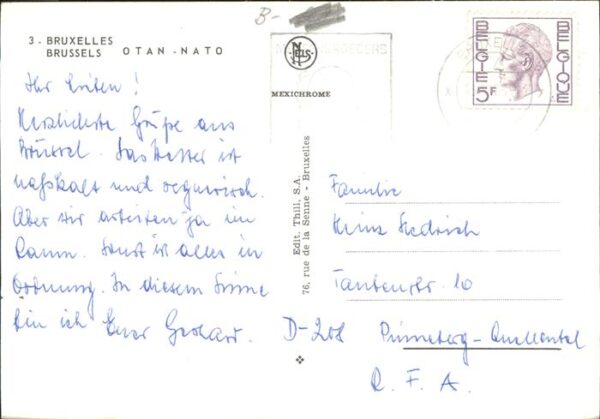 B-
3 - BRUXELLES
BRUSSELS OTAN - NATO
NELS
MEXICHROME
BELGIE BELGIQUE
5F
Ihr Lieben!
Herzlichste Grüße aus
Brüssel. Das Wetter ist
naßkalt und regnerisch.
Aber wir arbeiten ja im
Raum. Sonst ist alles in
Ordnung. In diesem Sinne
bin ich Euer Gerhard.
Edit. Thill, S.A.
76, rue de la Senne - Bruxelles
Familie
Heinz
10
D-208 Pinneberg-Quellental
R. F. A.